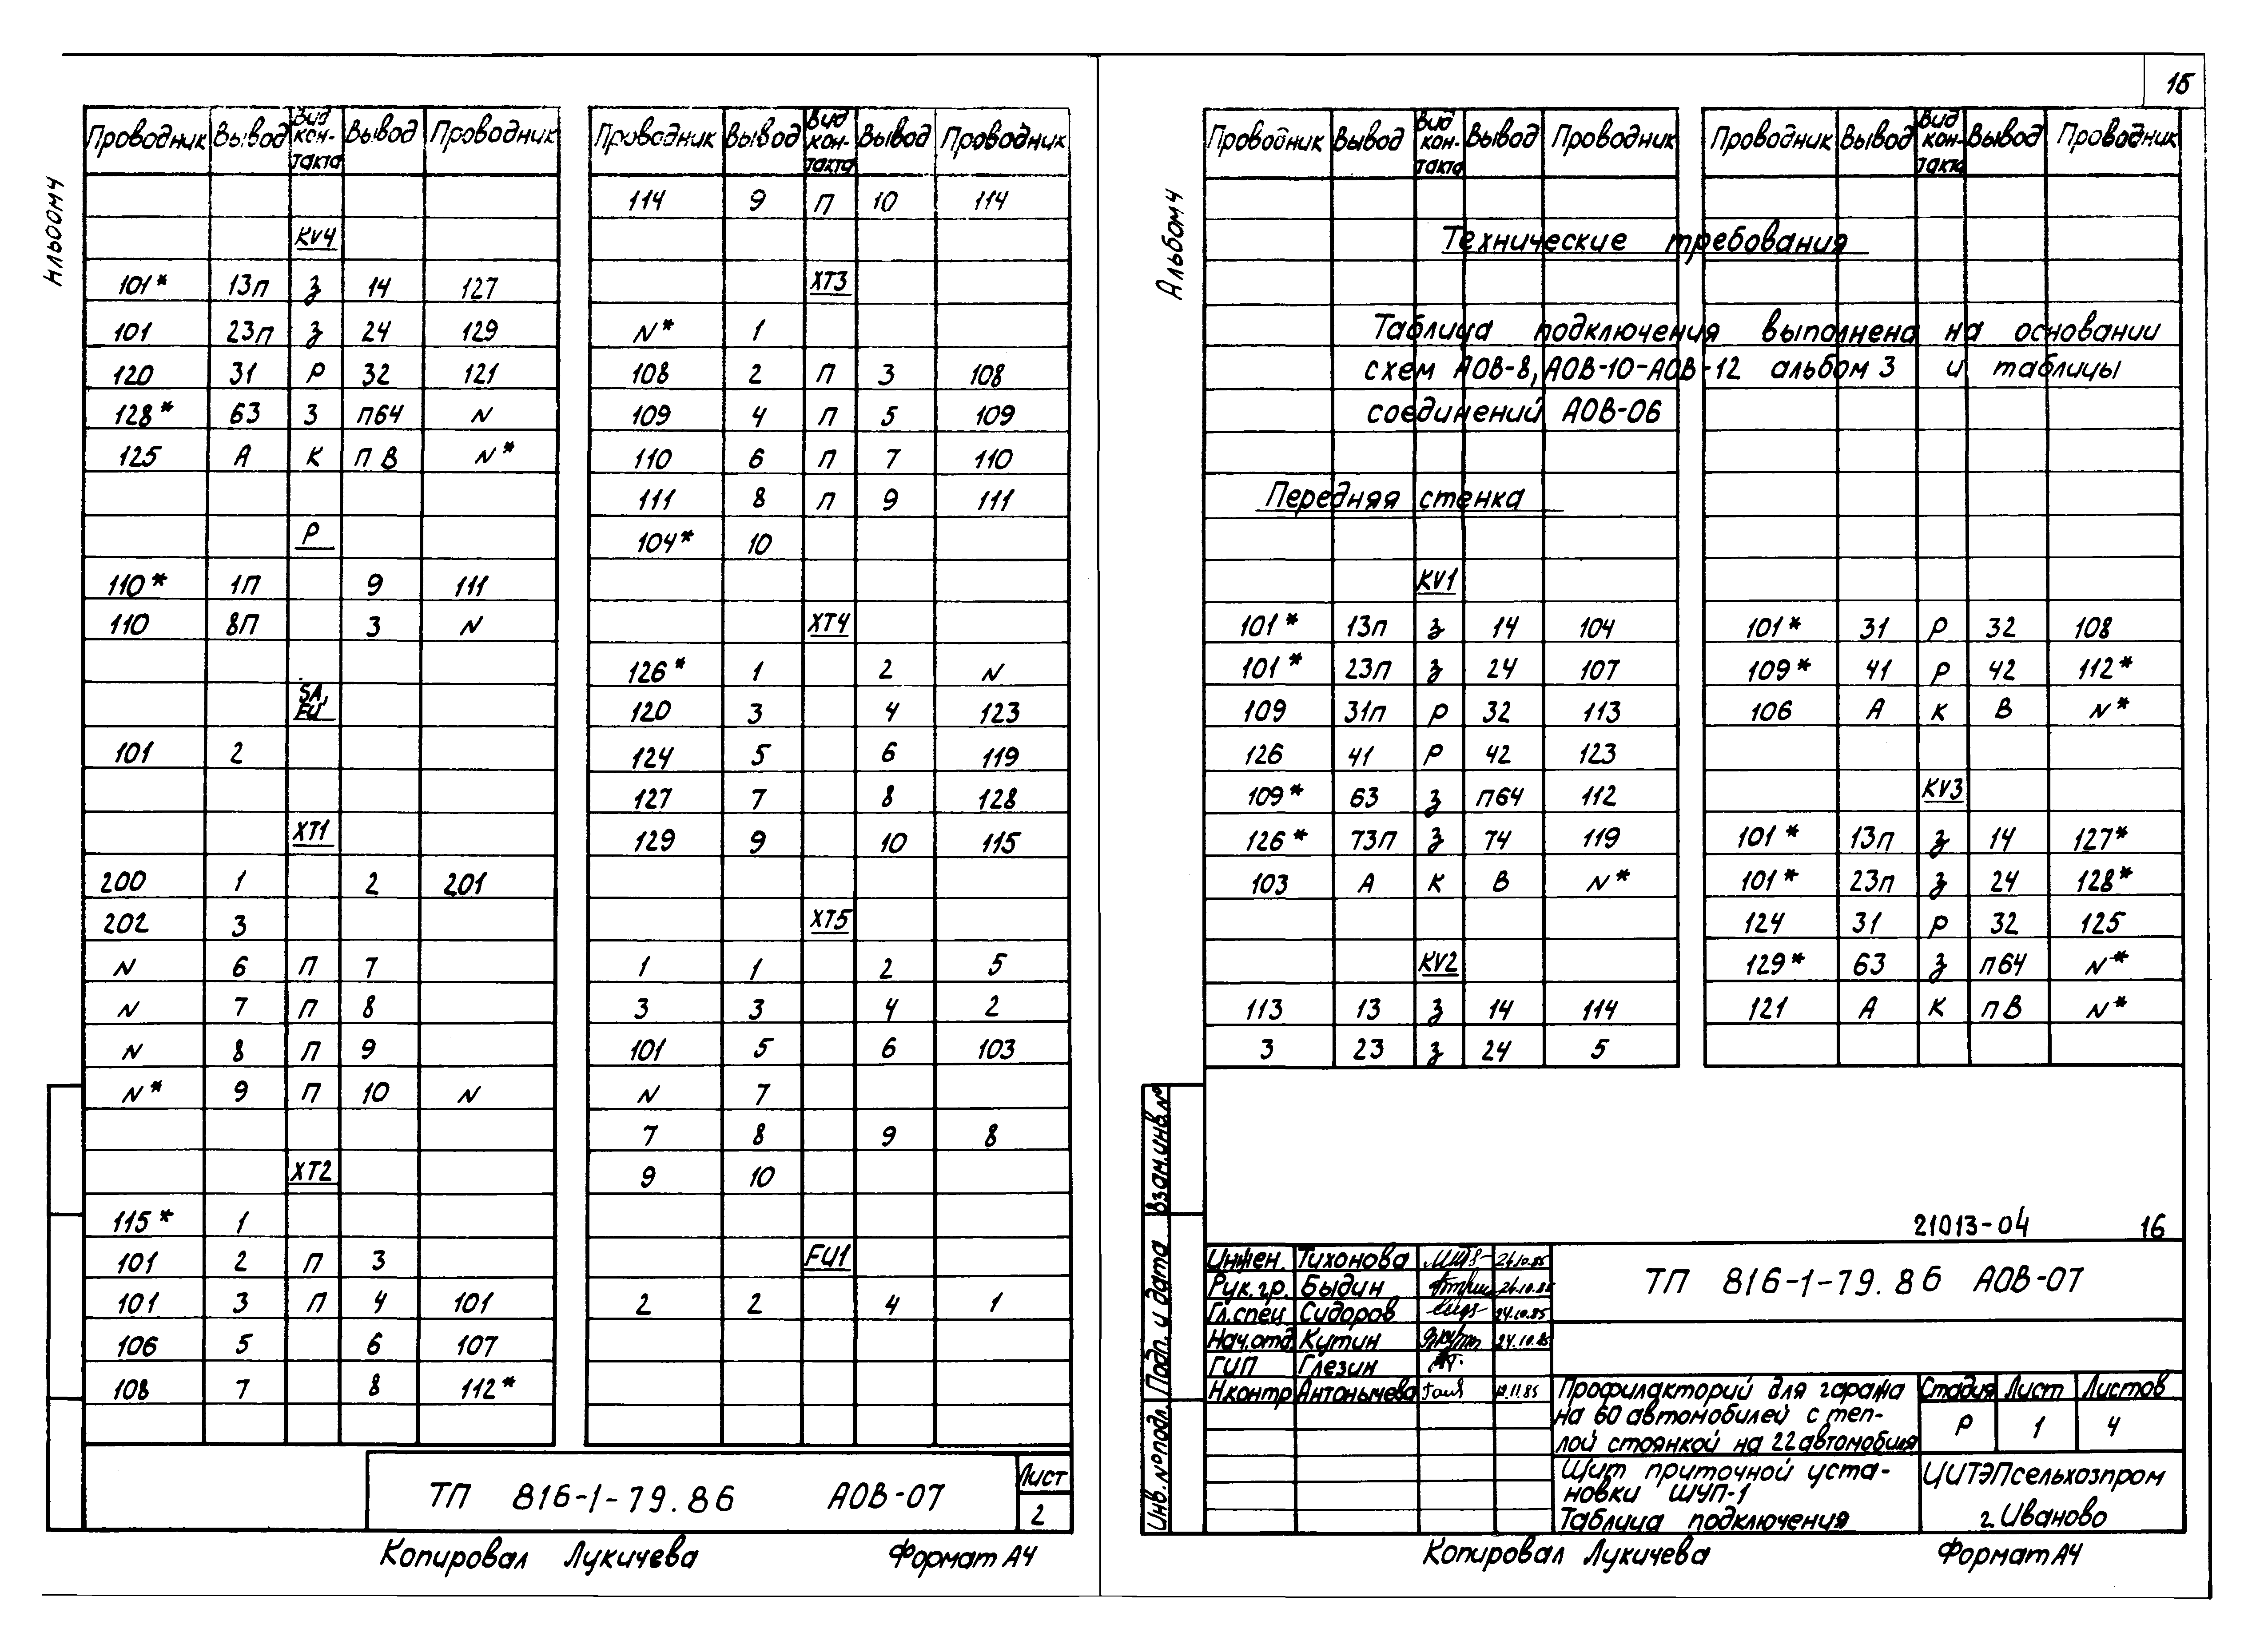 15
Альбом 4
Проводник Вывод Вид кон-такта Вывод Проводник
KV4
101* 13п з 14 127
101 23п з 24 129
120 31 Р 32 121
128* 63 З п64 N
125 А К п В N*
Р
110* 1П 9 111
110 8П 3 N
SA, FU
101 2
XT1
200 1 2 201
202 3
N 6 П 7
N 7 П 8
N 8 П 9
N* 9 П 10 N
XT2
115* 1
101 2 П 3
101 3 П 4 101
106 5 6 107
108 7 8 112*
Проводник Вывод Вид кон-такта Вывод Проводник
114 9 П 10 114
XT3
N* 1
108 2 П 3 108
109 4 П 5 109
110 6 П 7 110
111 8 П 9 111
104* 10
XT4
126* 1 2 N
120 3 4 123
124 5 6 119
127 7 8 128
129 9 10 115
XT5
1 1 2 5
3 3 4 2
101 5 6 103
N 7
7 8 9 8
9 10
FU1
2 2 4 1
ТП 816-1-79.86 АОВ-07
Лист
2
Копировал Лукичева Формат А4
Альбом 4
Проводник Вывод Вид кон-такта Вывод Проводник
Проводник Вывод Вид кон-такта Вывод Проводник
Технические требования
Таблица подключения выполнена на основании
схем АОВ-8, АОВ-10-АОВ-12 альбом 3 и таблицы
соединений АОВ-06
Передняя стенка
KV1
101* 13п з 14 104
101* 23п з 24 107
109 31п Р 32 113
126 41 Р 42 123
109* 63 з п64 112
126* 73п з 74 119
103 А К В N*
KV2
113 13 з 14 114
3 23 з 24 5
101* 31 Р 32 108
109* 41 Р 42 112*
106 А К В N*
KV3
101* 13п з 14 127*
101* 23п з 24 128*
124 31 Р 32 125
129* 63 з п64 N*
121 А К пВ N*
21013-04 16
Взам.инв.№
Подп. и дата
Инв.№подл.
Инжен. Тихонова 24.10.85
Рук.гр. Быдин
Гл.спец Сидоров 24.10.85
Нач.отд Кутин 24.10.85
ГИП Глезин
Н.контр Антонычева
ТП 816-1-79.86 АОВ-07
Профилакторий для гаража
на 60 автомобилей с теп-
лой стоянкой на 22 автомобиля
Стадия Лист Листов
Р 1 4
Щит приточной уста-
новки ШУП-1
Таблица подключения
ЦИТЭПсельхозпром
г. Иваново
Копировал Лукичева Формат А4